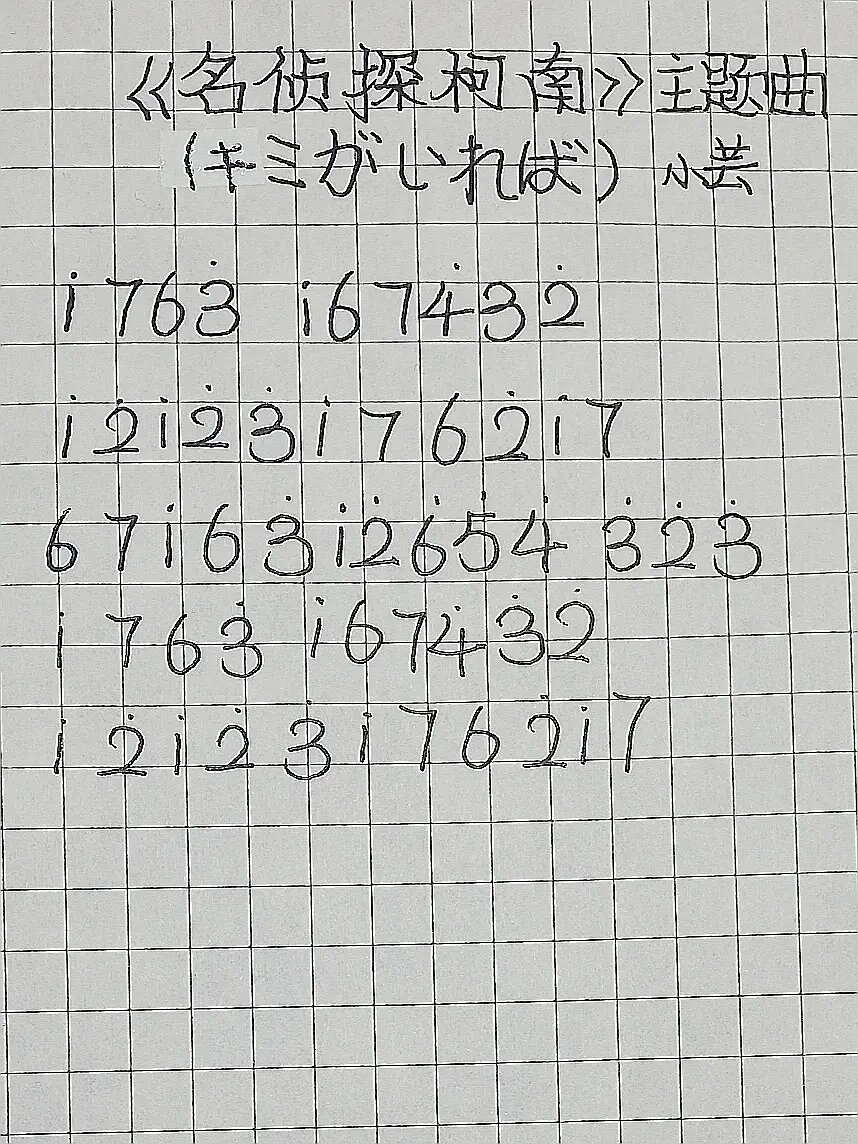 《名侦探柯南》主题曲
(キミがいれば) 小芸
i̇ 7 6 3̇  i̇ 6 7 4̇ 3̇ 2̇
i̇ 2̇ i̇ 2̇ 3̇ i̇ 7 6 2̇ i̇ 7
6 7 i̇ 6 3̇ i̇ 2̇ 6̇ 5̇ 4̇ 3̇ 2̇ 3̇
i̇ 7 6 3̇  i̇ 6 7 4̇ 3̇ 2̇
i̇ 2̇ i̇ 2̇ 3̇ i̇ 7 6 2̇ i̇ 7